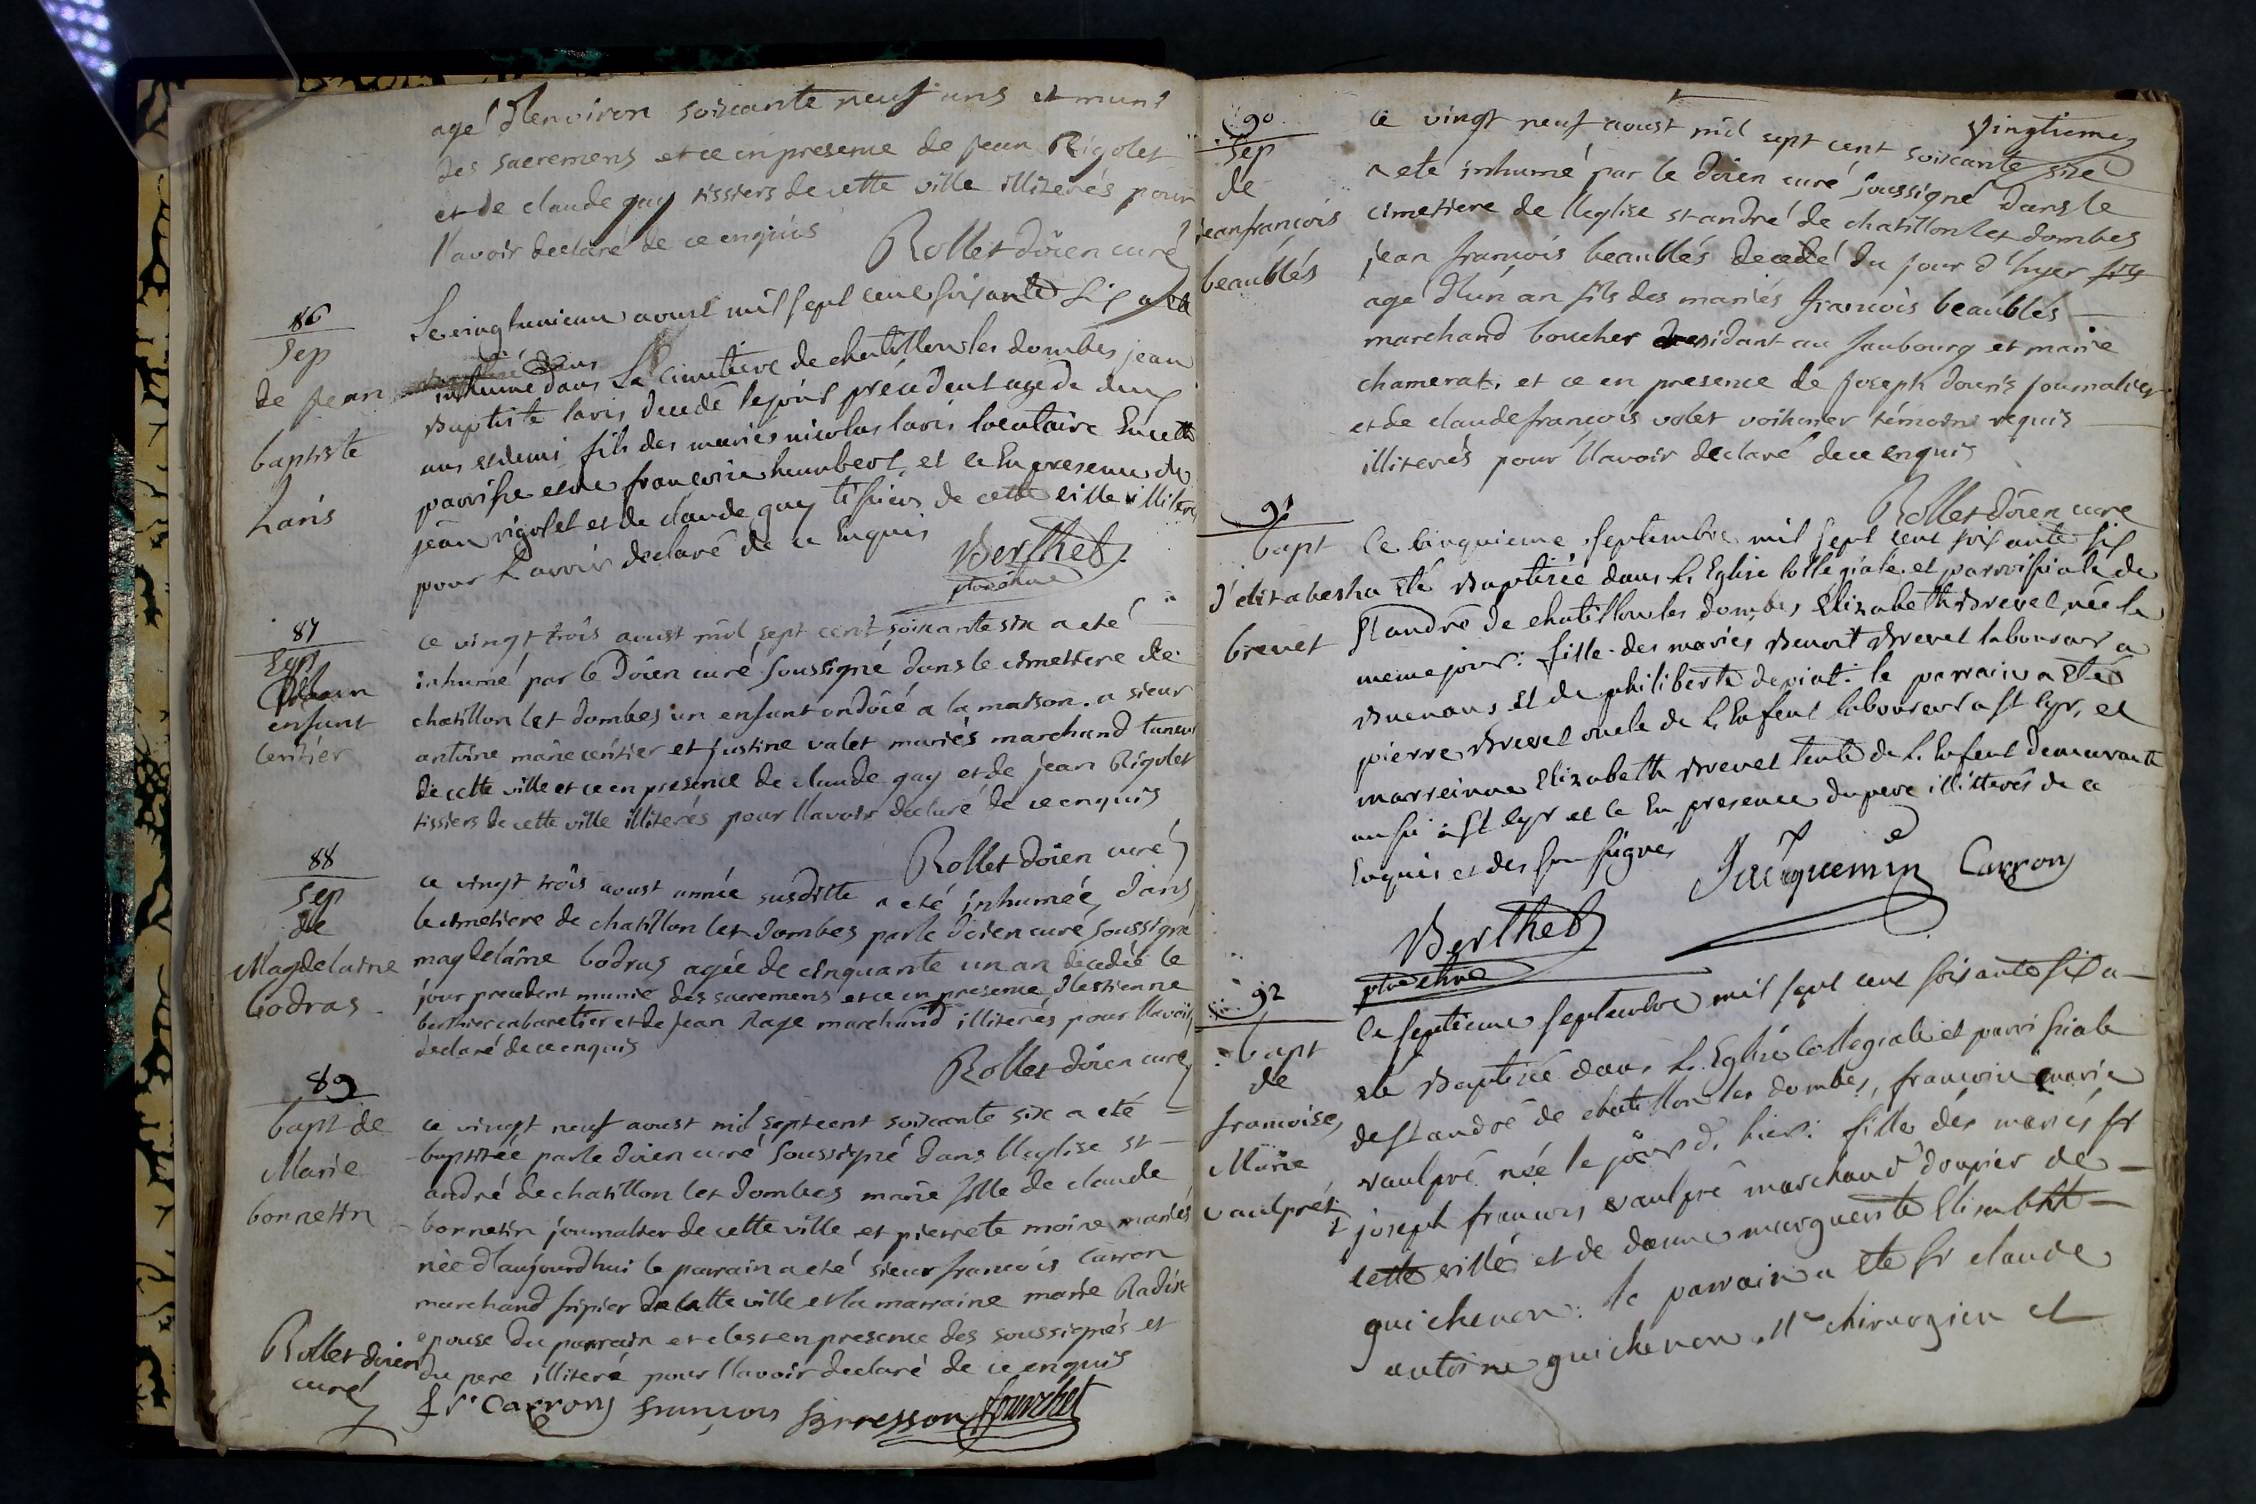 agé d'environ soixante neuf ans et muni
des sacremens et ce en presence de jean Rigolet
et de claude gay tissiers de cette ville illiterés pour
l'avoir declaré de ce enquis
Rollet doïen curé
86
Sep
de jean
baptiste
Laris
Le vingtunieme aoust mil sept cent soixante six a été
inhumé dans Le cimetiere de chatillon les dombes jean
Baptiste laris decedé le jour précédent agé de deux
ans et demi fils des mariés nicolas laris locataire En cette
parroisse et de françoise humbert, et ce En presence de
jean rigolet et de claude gay tissiers de cette ville illiterés
pour L'avoir declaré de ce Enquis
Berthet
87
Sep
enfant
centier
ce vingt trois aoust mil sept cent soixante six a eté
inhumé par le Doïen curé soussigné dans le cimetiere de
chatillon les dombes un enfant ondoïé a la maison. a sieur
antoine marie centier et justine valet mariés marchand taneur
de cette ville et ce en presence de claude gay et de jean Rigolet
tissiers de cette ville illiterés pour l'avoir declaré de ce enquis
Rollet doïen curé
88
Sep
de
Magdelaine
bodras
ce vingt trois aoust année susditte a eté inhumée dans
le cimetiere de chatillon les dombes par le doïen curé soussigné
magdelaine bodras agée de cinquante un an decedée le
jour precedent munie des sacremens et ce en presence d'estienne
bernier cabaretier et de jean Rage marchand illiterés pour l'avoir
declaré de ce enquis
Rollet doïen curé
89
bapt de
Marie
bonnetin
ce vingt neuf aoust mil sept cent soixante six a eté
baptisée par le doïen curé soussigné dans l'eglise st
andré de chatillon les dombes marie fille de claude
bonnetin journalier de cette ville et pierrete moine mariés
née d'aujourdhui le parrain a eté sieur françois carron
marchand fripier de cette ville et la marraine marie Radix
epouse du parrain et c'est en presence des soussignés et
du pere illiteré pour l'avoir declaré de ce enquis
Rollet doïen
curé
fr. Carron françois Bresson fourchet
vingtieme
90
Sep
de
jean françois
beaublés
ce vingt neuf aoust mil sept cent soixante six
a eté inhumé par le doïen curé soussigné dans le
cimetiere de l'eglise st andré de chatillon les dombes
jean françois beaublés decedé du jour d'hyer fils
agé d'un an fils des mariés françois beaublés
marchand boucher residant au faubourg et marie
chamerat. et ce en presence de joseph douris journalier
et de claude françois volet voiturier témoins requis
illiterés pour l'avoir declaré de ce enquis
Rollet doïen curé
91
bapt
d'elizabeth
brevet
Le cinquieme septembre mil sept cent soixante six
a Eté Baptisée dans L'Eglise collegiale et parroissiale de
St andré de chatillon les dombes, Elizabeth Brevet née le
meme jour: fille des mariés Benoit Brevet laboureur a
Buenans et de philiberte depiat: le parrain a Eté
pierre Brevet oncle de L'Enfent laboureur a st Cyr, et
marreinne Elizabeth Brevet tente de L'Enfent demeurante
aussi a St Cyr et ce En presence du pere illitterés de ce
Enquis et des soussignés
Jacquemin Carron
Berthet
92
bapt
de
francoise
Marie
vaulpré
Le septieme septembre mil sept cent soixante six a
eté Baptisée dans L'Eglise collegiale et parroissiale
de St andré de chatillon les dombes, françoise marie
vaulpré née le jour d'hier: fille des mariés sr
joseph françois vaulpré marchand drapier de
cette ville et de dame marguerite Elisabeth
guichenon: le parrain a été sr claude
antoine guichenon Me chirurgien et